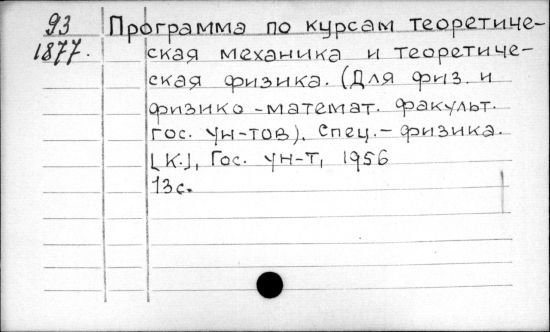 93 Программа по курсам теоретиче-
1877. ская механика и теоретиче-
ская физика. (Для физ. и
физико-математ. факульт.
гос. ун-тов). Спец.- физика.
[К.], Гос. ун-т, 1956
13с.